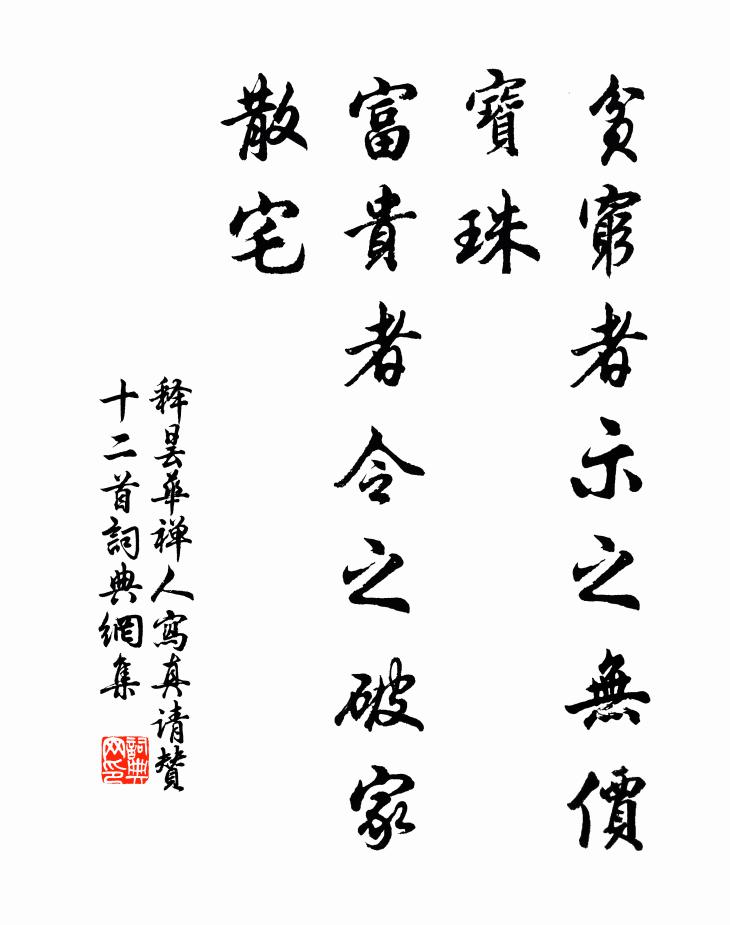 貧窮者示之無價
寶珠
富貴者令之破家
散宅
释曇華禅人寫真请贊
十二首詞典網集
詞典網印